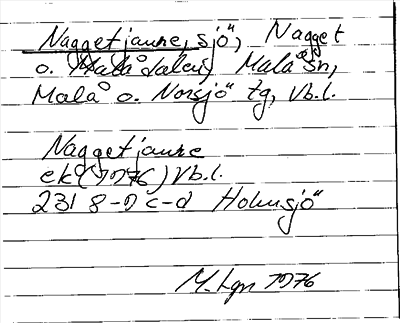 Naggetjaure, sjö, Nagget
o. Malådalen, Malå sn,
Malå o. Norsjö tg, Vb.l.
Naggetjaure
ek (1976) Vb.l.
23I 8-9 c-d Holmsjö
1976